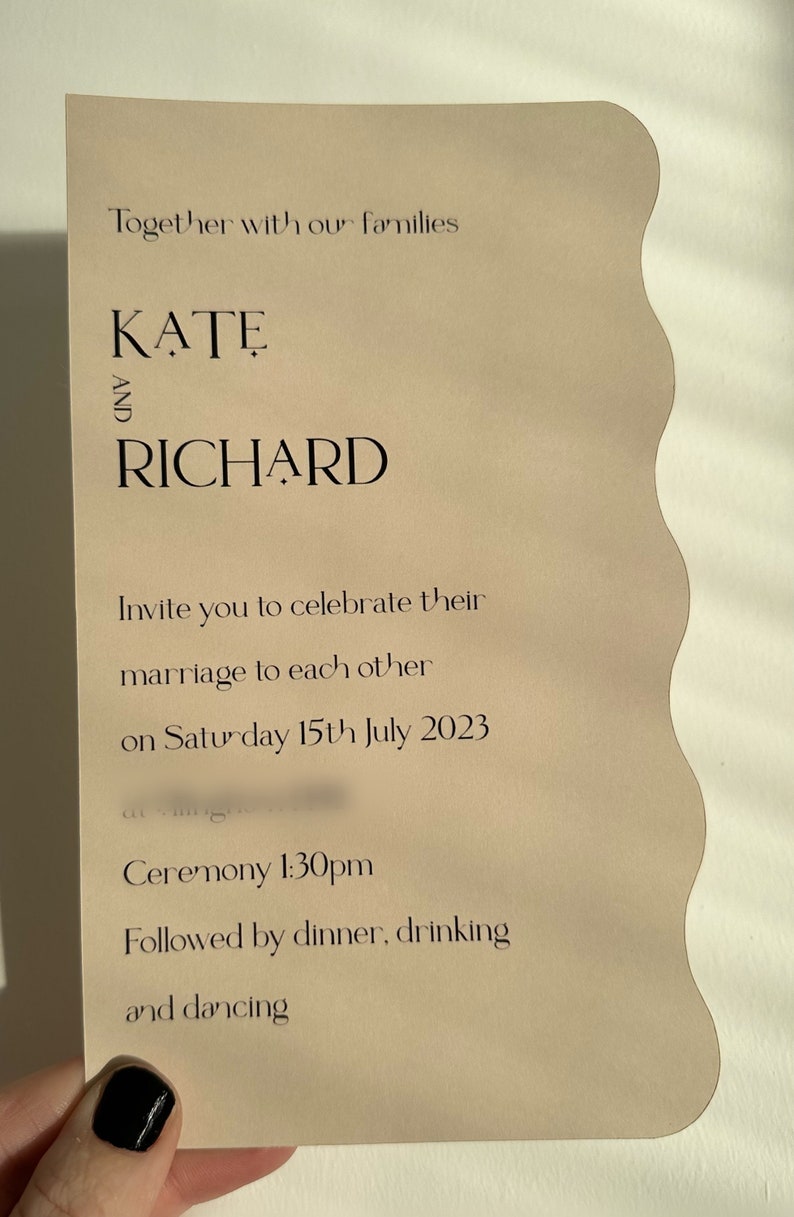 Together with our families
KATE
AND
RICHARD
Invite you to celebrate their
marriage to each other
on Saturday 15th July 2023
at
Ceremony 1:30pm
Followed by dinner, drinking
and dancing